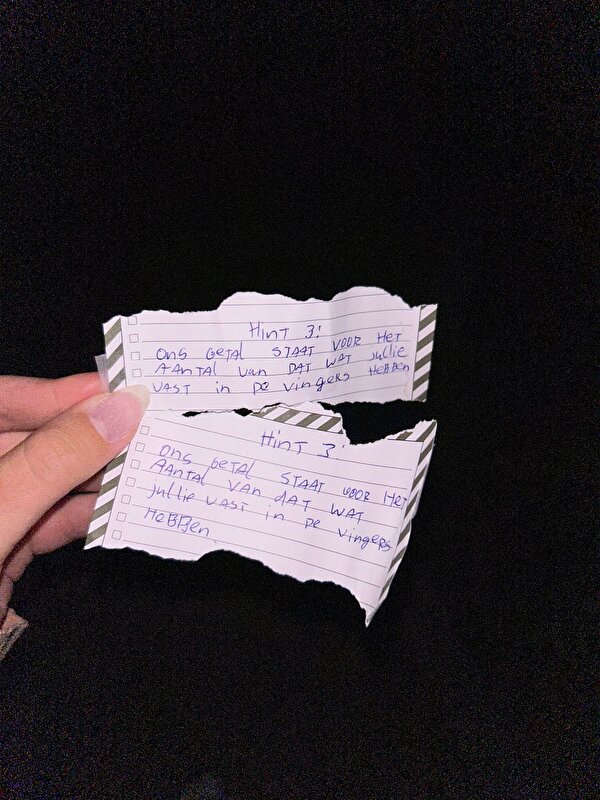 Hint 3:
Ons getal staat voor het
aantal van dat wat jullie
vast in de vingers hebben
Hint 3:
Ons getal staat voor het
aantal van dat wat
jullie vast in de vingers
hebben